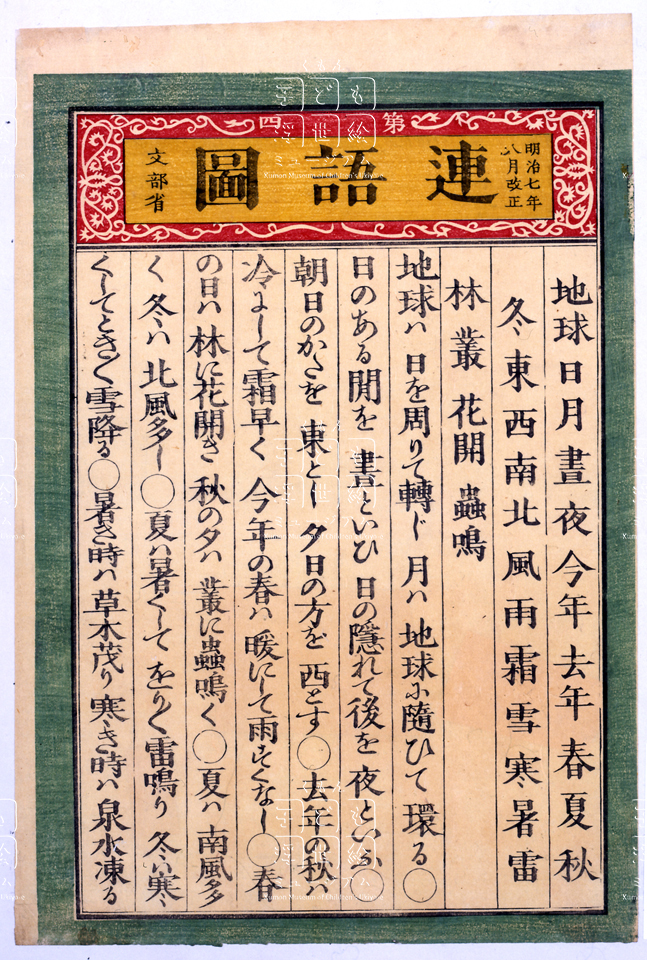 第四
明治七年
八月改正
連語圖
文部省
地球 日 月 晝 夜 今年 去年 春 夏 秋
冬 東 西 南 北 風 雨 霜 雪 寒 暑 雷
林 叢 花開 蟲鳴
地球ハ 日を周りて轉じ 月ハ 地球に隨ひて 環る〇
日のある閒を 晝といひ 日の隱れて後を 夜といふ〇
朝日のかたを 東とし 夕日の方を 西とす〇去年の秋ハ
冷にして霜早く 今年の春ハ 暖にして雨すくなし〇春
の日ハ 林に花開き 秋の夕ハ 叢に蟲鳴く〇夏ハ 南風多
く 冬ハ 北風多し〇夏ハ暑くして をり〱雷鳴り 冬ハ寒
くしてとき〲雪降る〇暑き時ハ 草木茂り 寒き時ハ 泉水凍る
子ども
浮世絵
ミュージアム
Kumon Museum of Children's Ukiyo-e